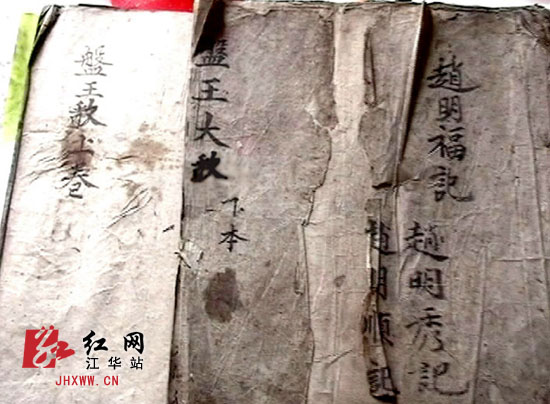 盤王歌上卷
盤王大歌
下本
趙明福記
趙明秀記
趙明順記
红网
江华站
JHXWW.CN